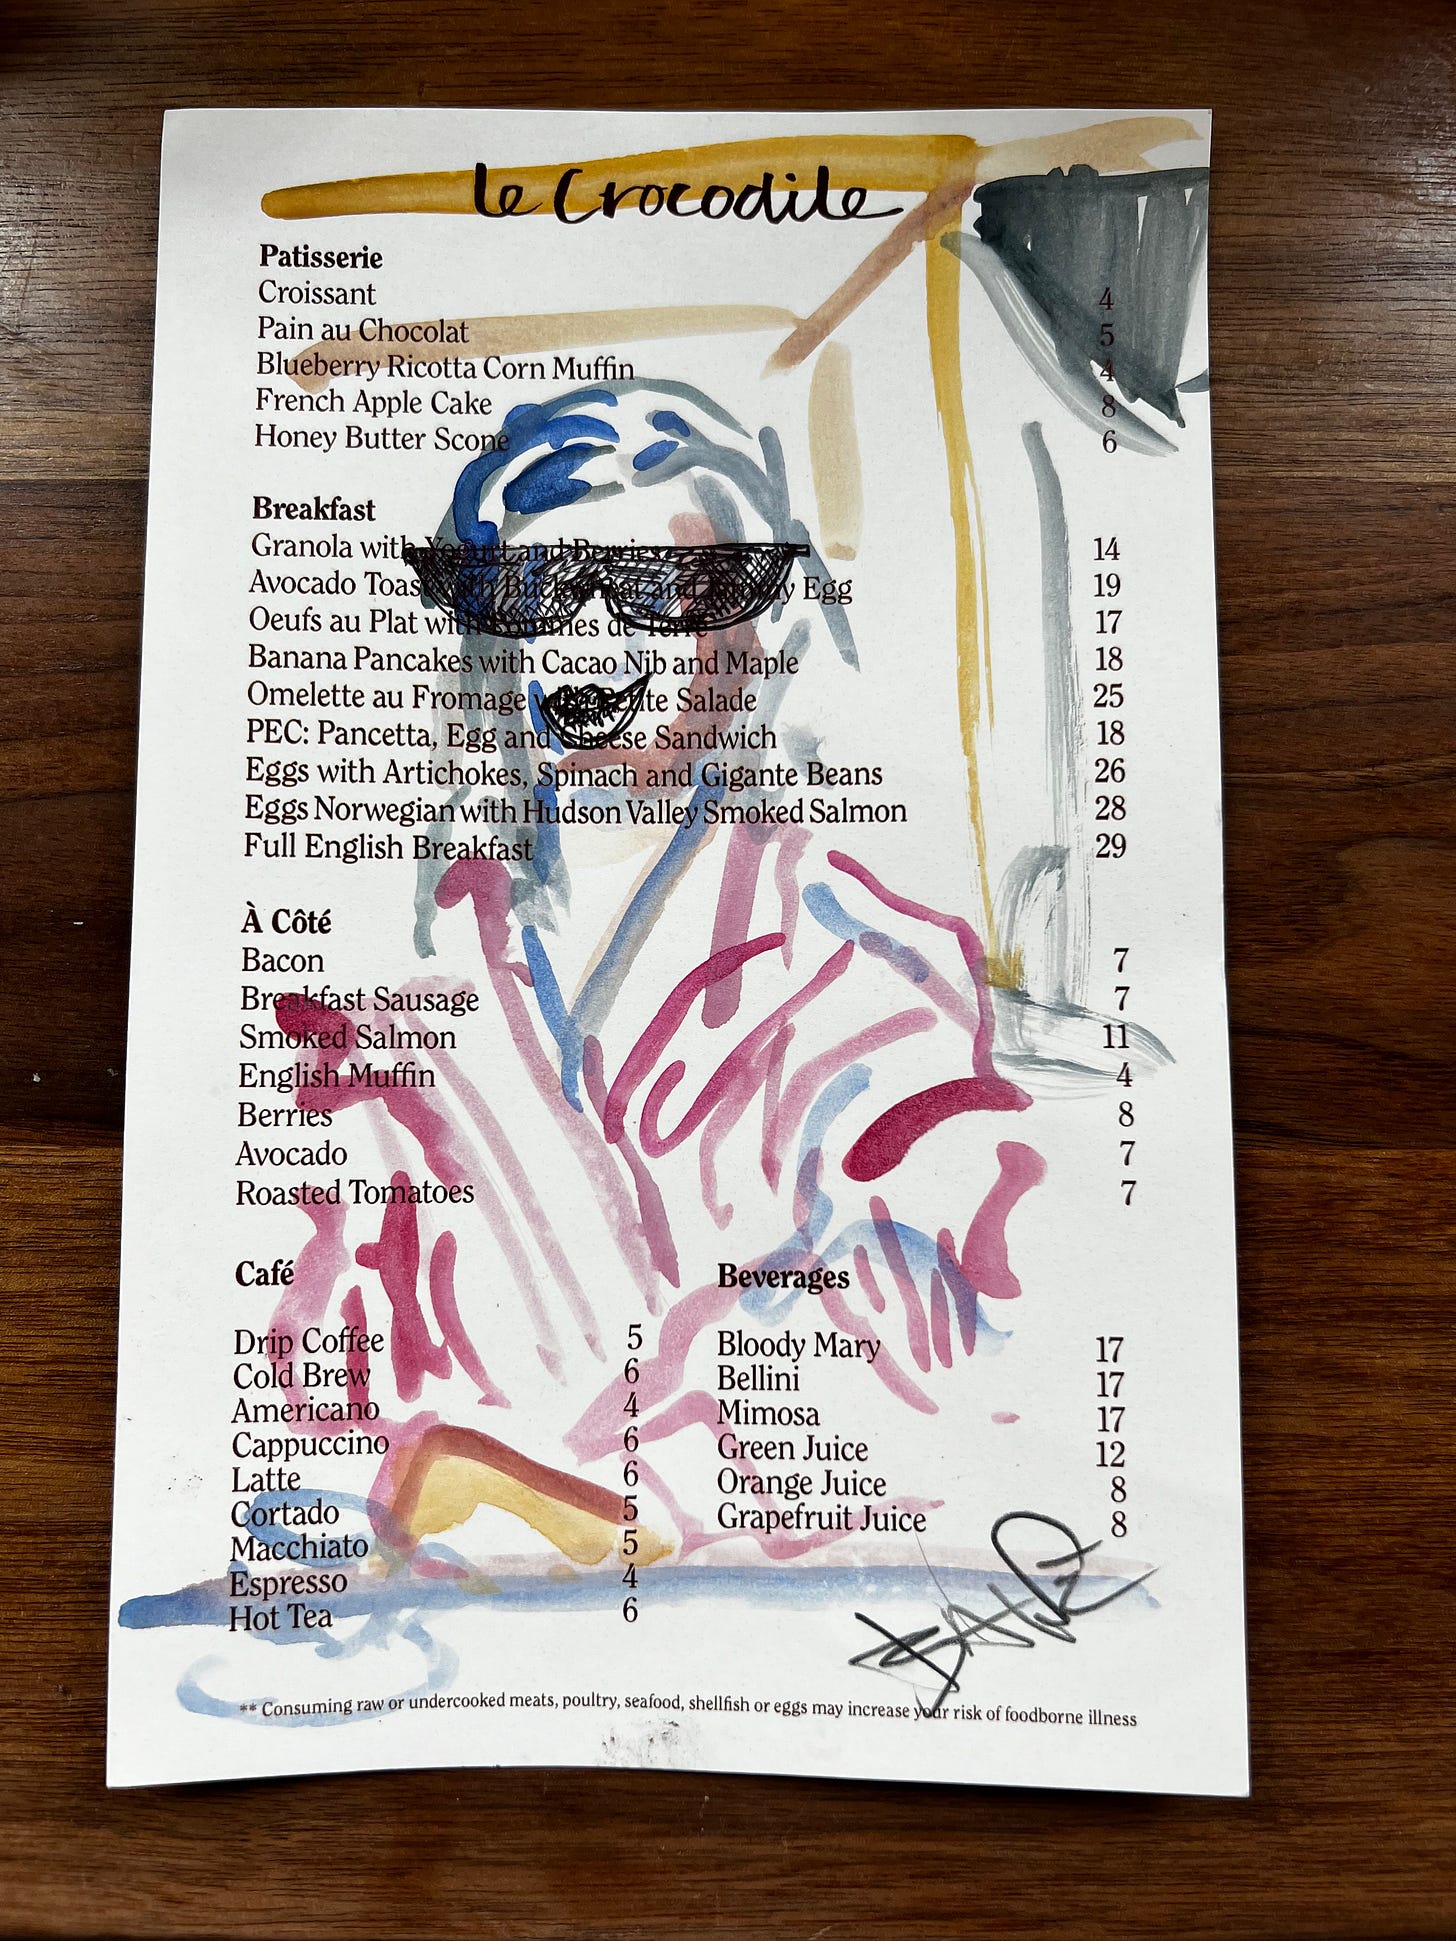 le Crocodile
Patisserie
Croissant 4
Pain au Chocolat 5
Blueberry Ricotta Corn Muffin 4
French Apple Cake 8
Honey Butter Scone 6
Breakfast
Granola with Yogurt and Berries 14
Avocado Toast with Buckwheat and Jammy Egg 19
Oeufs au Plat with Pommes de Terre 17
Banana Pancakes with Cacao Nib and Maple 18
Omelette au Fromage with Petite Salade 25
PEC: Pancetta, Egg and Cheese Sandwich 18
Eggs with Artichokes, Spinach and Gigante Beans 26
Eggs Norwegian with Hudson Valley Smoked Salmon 28
Full English Breakfast 29
À Côté
Bacon 7
Breakfast Sausage 7
Smoked Salmon 11
English Muffin 4
Berries 8
Avocado 7
Roasted Tomatoes 7
Café
Drip Coffee 5
Cold Brew 6
Americano 4
Cappuccino 6
Latte 6
Cortado 5
Macchiato 5
Espresso 4
Hot Tea 6
Beverages
Bloody Mary 17
Bellini 17
Mimosa 17
Green Juice 12
Orange Juice 8
Grapefruit Juice 8
** Consuming raw or undercooked meats, poultry, seafood, shellfish or eggs may increase your risk of foodborne illness